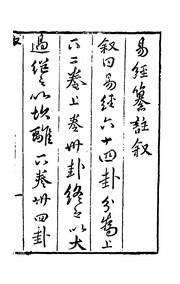 易經纂註叙
叙曰易經六十四卦分為上
下二卷上卷卅卦終之以大
過繼之以坎離下卷卅四卦